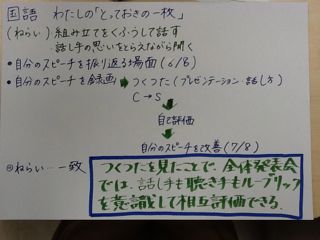 国語 わたしの「とっておきの一枚」
(ねらい) 組み立てをくふうして話す
話し手の思いをとらえながら聞く
•自分のスピーチを振り返る場面(6/8)
•自分のスピーチを録画➡つくつた(プレゼンテーション・話し方)
C→S
自己評価
自分のスピーチを改善(7/8)
◎ねらい…一致
つくつたを見たことで、全体発表会
では、話し手も聴き手もルーブリック
を意識して相互評価できる。